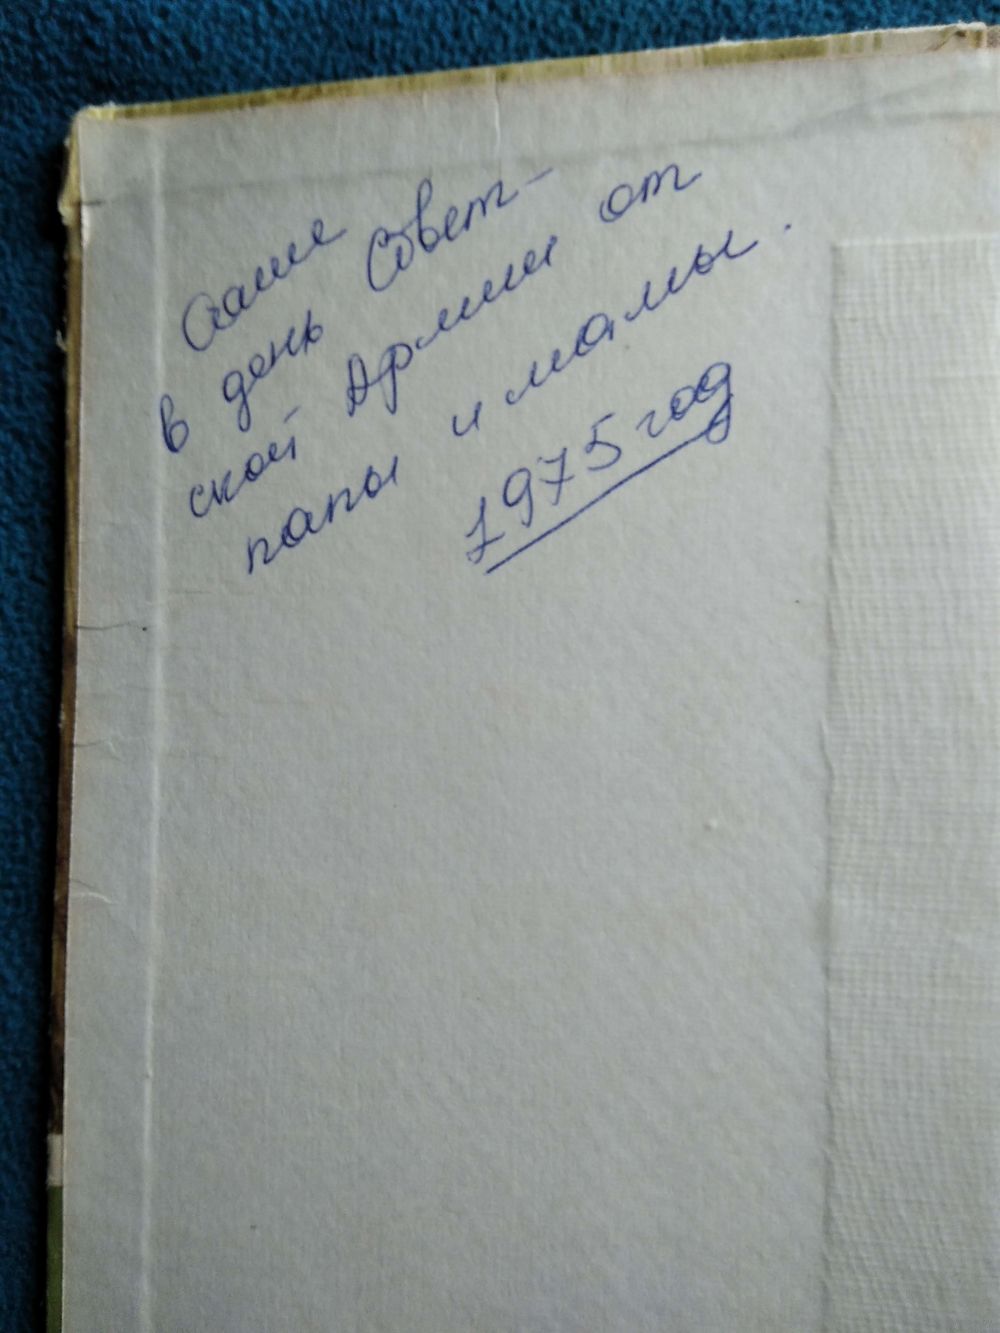 Саше
в день Совет-
ской Армии от
папы и мамы.
1975 год